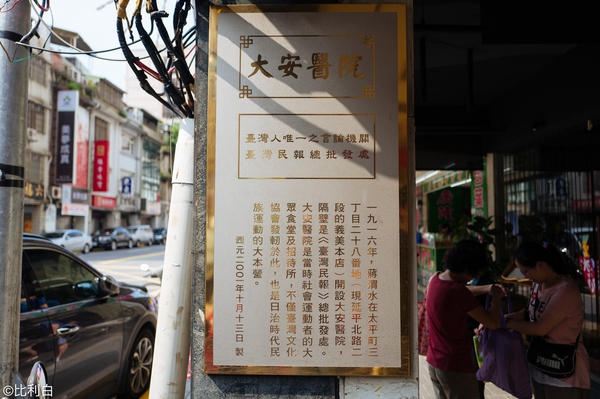 大安醫院
臺灣人唯一之言論機關
臺灣民報總批發處
一九一六年，蔣渭水在太平町三
丁目二十八番地（現延平北路二
段的義美本店）開設大安醫院，
隔壁是《臺灣民報》總批發處。
大安醫院是當時社會運動者的大
眾食堂及招待所，不僅臺灣文化
協會發軔於此，也是日治時代民
族運動的大本營。
西元二〇〇二年十月十三日 製
©比利白